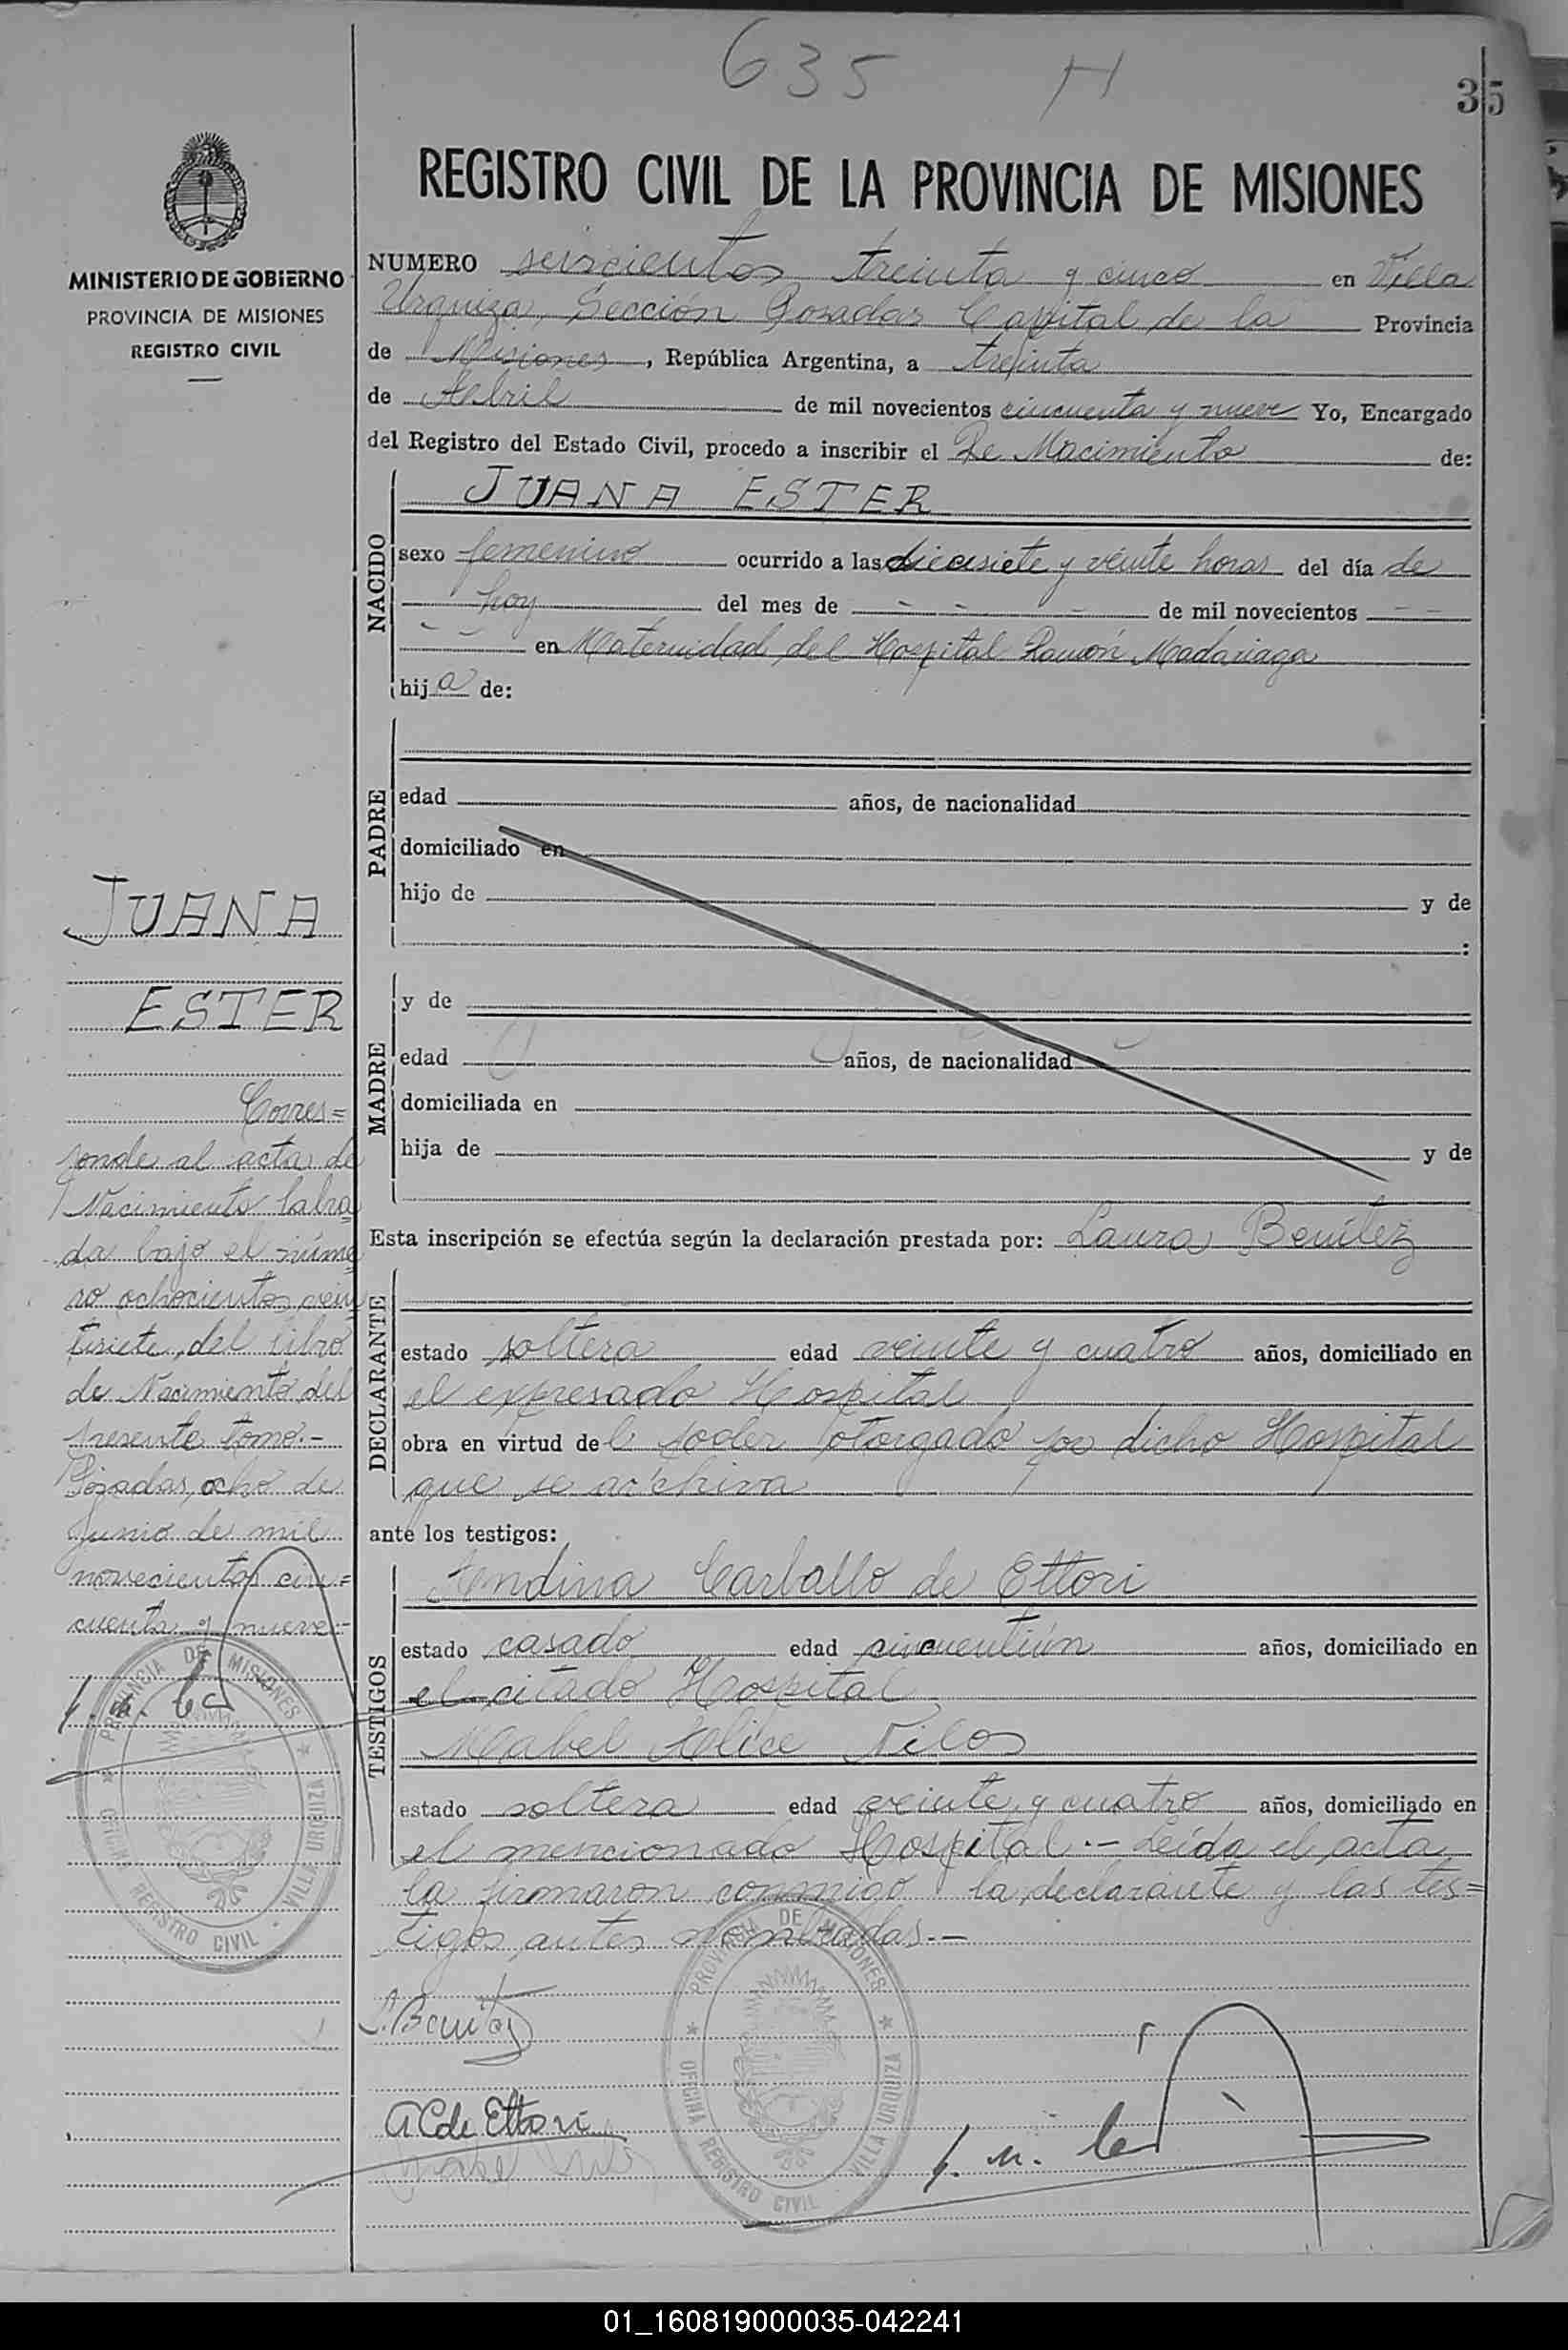 635 H
35
MINISTERIO DE GOBIERNO
PROVINCIA DE MISIONES
REGISTRO CIVIL
REGISTRO CIVIL DE LA PROVINCIA DE MISIONES
NUMERO seiscientos treinta y cinco en Villa
Urquiza, Sección Posadas Capital de la Provincia
de Misiones, República Argentina, a treinta
de Abril de mil novecientos cincuenta y nueve Yo, Encargado
del Registro del Estado Civil, procedo a inscribir el De Nacimiento de:
NACIDO
JUANA ESTER
sexo femenino ocurrido a las diecisiete y veinte horas del día de
hoy del mes de - - - de mil novecientos - -
- - en Maternidad del Hospital Ramón Madariaga
hija de:
PADRE
edad años, de nacionalidad
domiciliado en
hijo de y de
:
MADRE
y de
edad años, de nacionalidad
domiciliada en
hija de y de
Esta inscripción se efectúa según la declaración prestada por: Laura Benítez
DECLARANTE
estado soltera edad veinte y cuatro años, domiciliado en
el expresado Hospital
obra en virtud del poder otorgado por dicho Hospital
que se archiva
ante los testigos:
TESTIGOS
Andina Carballo de Ettori
estado casado edad cincuentiún años, domiciliado en
el citado Hospital
Mabel Alice Nilos
estado soltera edad veinte y cuatro años, domiciliado en
el mencionado Hospital.- Leída el acta,
la firmaron conmigo la declarante y las tes=
tigos antes nombradas.-
L. Benitez
A C de Ettori
PROVINCIA DE MISIONES
OFICINA REGISTRO CIVIL · VILLA URQUIZA
JUANA
ESTER
Corres=
ponde al acta de
Nacimiento labra
da bajo el núme
ro ochocientos vein
tisiete, del libro
de Nacimiento del
presente tomo.-
Posadas, ocho de
Junio de mil
novecientos cin=
cuenta y nueve.-
PROVINCIA DE MISIONES
OFICINA REGISTRO CIVIL · VILLA URQUIZA
01_160819000035-042241